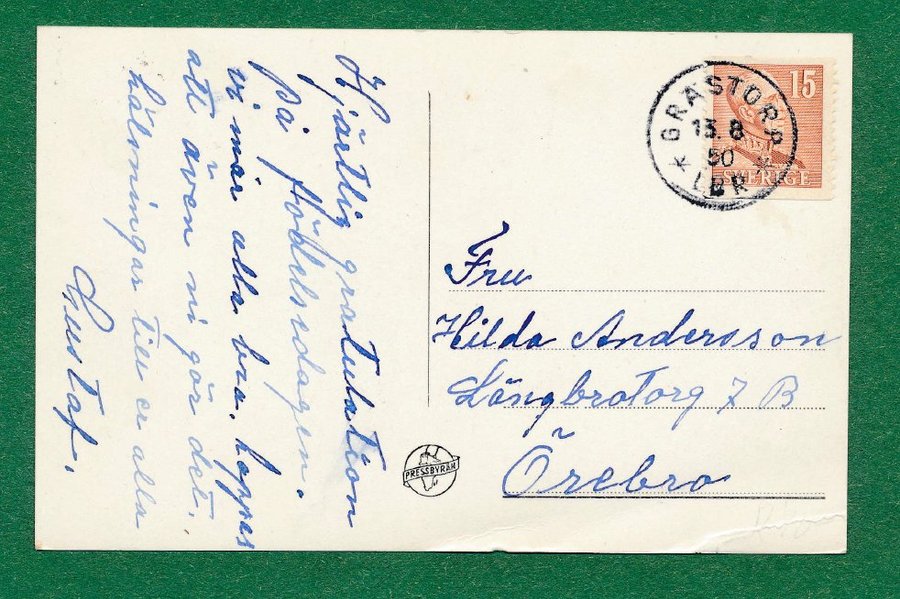 Hjärtlig gratulation
på födelsedagen.
vi mår alla bra, hoppas
att även ni gör det.
hälsningar till er alla
Gustaf.
15
SVERIGE
GRÄSTORP
13.8
50
LBR
Fru
Hilda Andersson
Längbrotorg 7 B
Örebro
PRESSBYRÅN